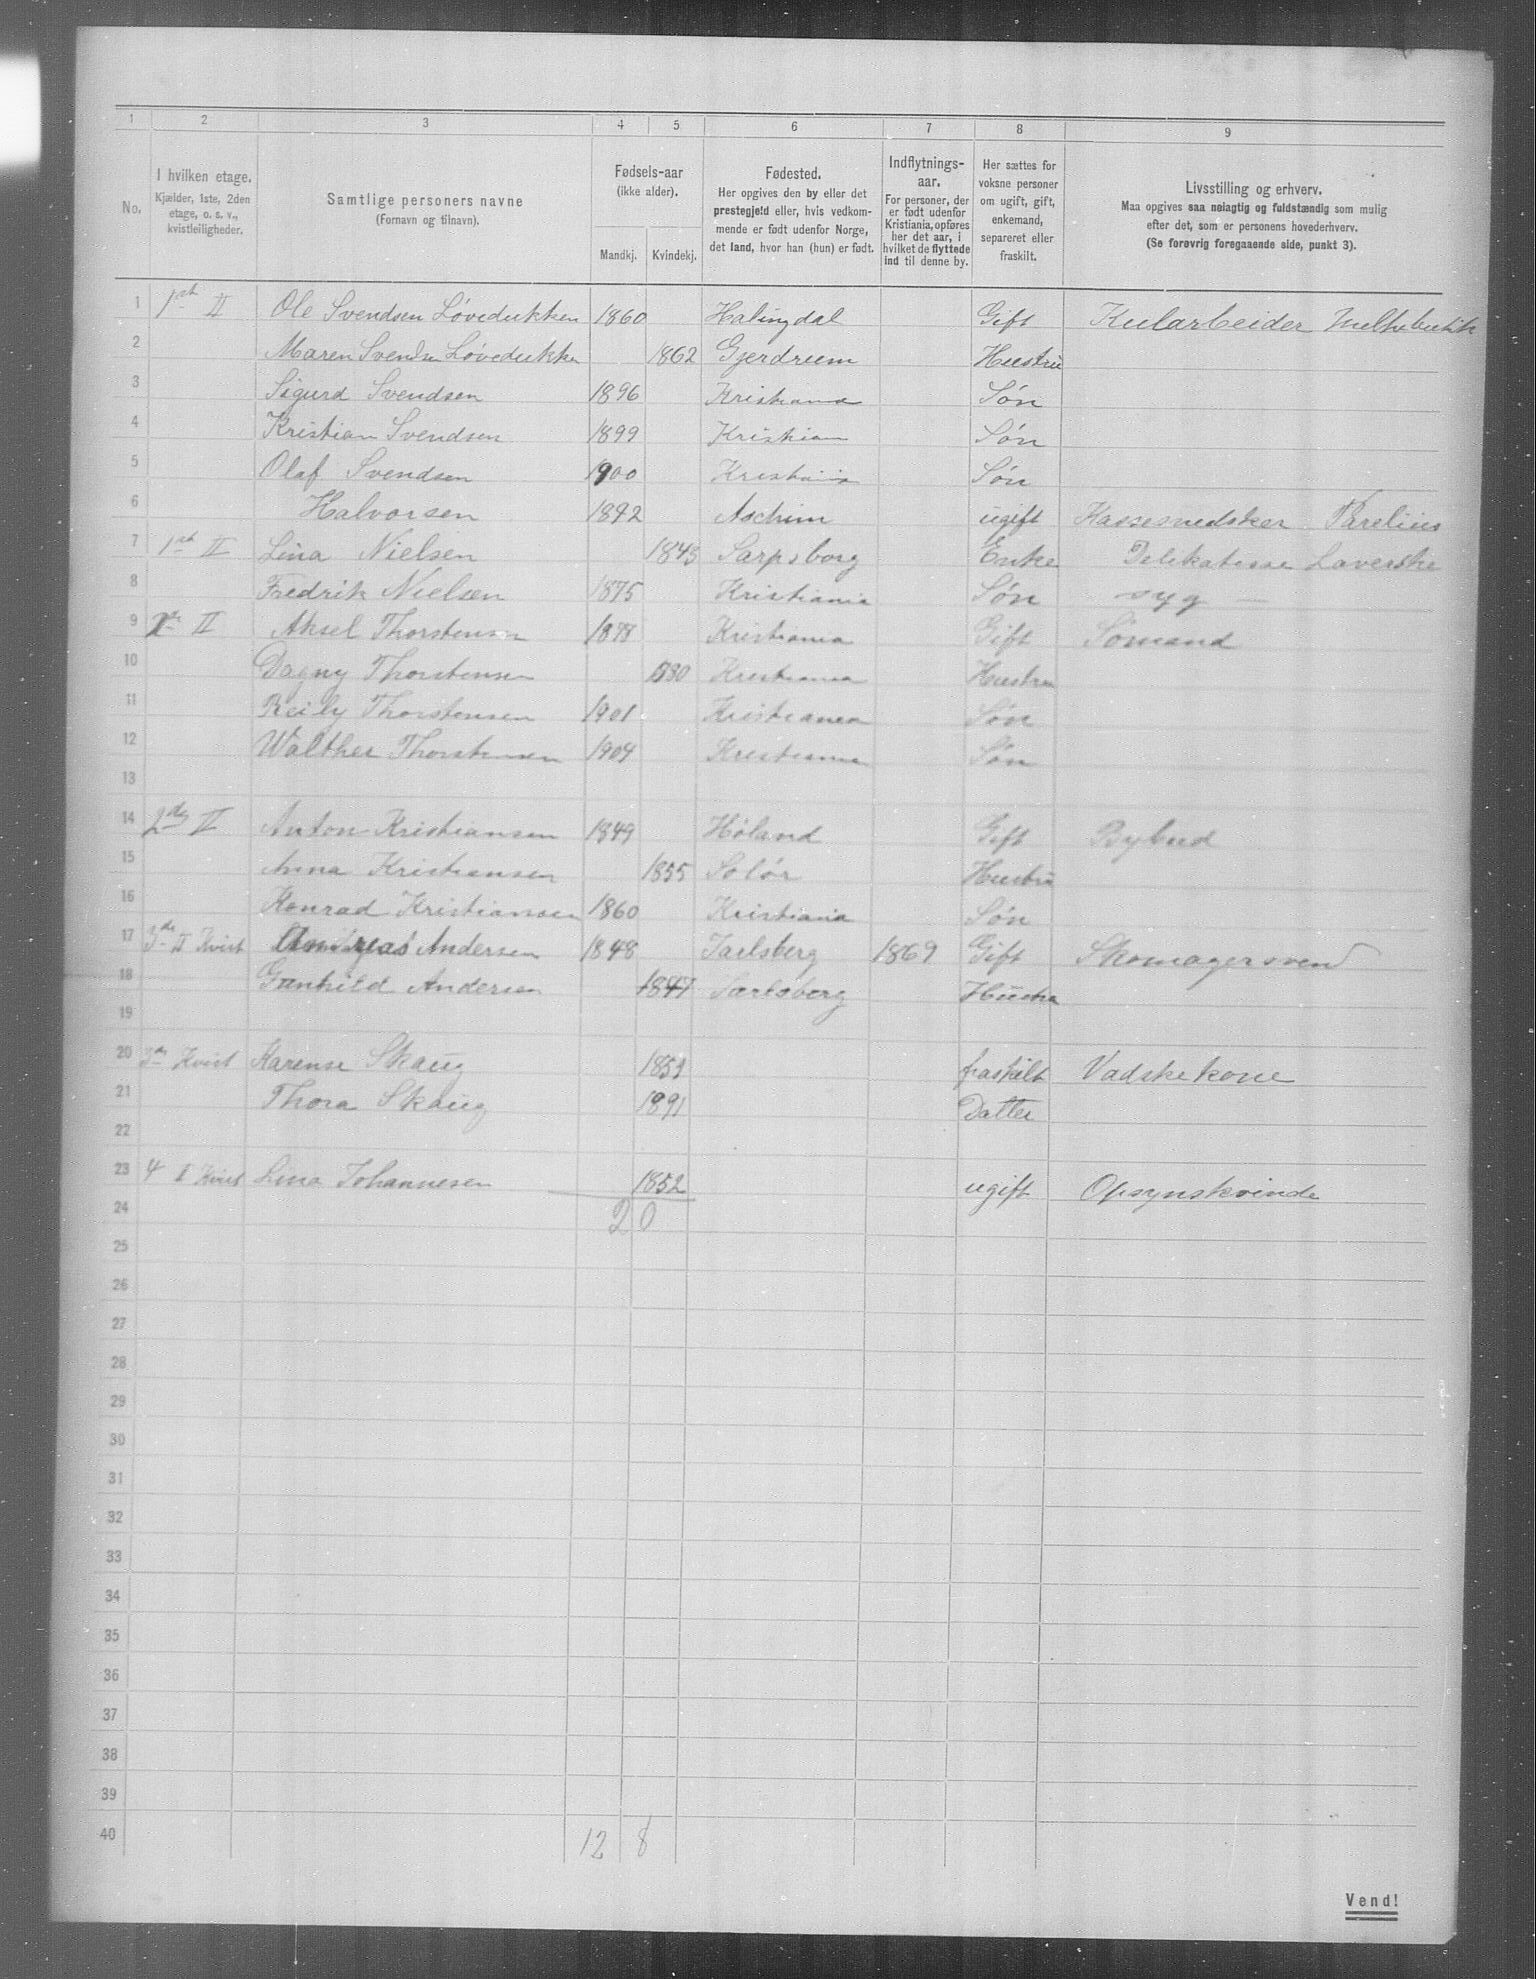 1 2 3 4 5 6 7 8 9
No.
I hvilken etage.
Kjælder, 1ste, 2den
etage, o. s. v.,
kvistleiligheder.
Samtlige personers navne
(Fornavn og tilnavn).
Fødsels-aar
(ikke alder).
Mandkj. Kvindekj.
Fødested.
Her opgives den by eller det
prestegjeld eller, hvis vedkom-
mende er født udenfor Norge,
det land, hvor han (hun) er født.
Indflytnings-
aar.
For personer, der
er født udenfor
Kristiania, opføres
her det aar, i
hvilket de flyttede
ind til denne by.
Her sættes for
voksne personer
om ugift, gift,
enkemand,
separeret eller
fraskilt.
Livsstilling og erhverv.
Maa opgives saa nøiagtig og fuldstændig som mulig
efter det, som er personens hovederhverv.
(Se forøvrig foregaaende side, punkt 3).
1 1st II Ole Svendsen Løvedukken 1860 Halingdal Gift Kularbeider
2 Maren Svendsen Løvedukken 1862 Gjerdrum Hustru
3 Sigurd Svendsen 1896 Kristiania Søn
4 Kristian Svendsen 1899 Kristian Søn
5 Olaf Svendsen 1900 Kristiania Søn
6 Halvorsen 1892 Aschim ugift Parelius
7 1st II Lina Nielsen 1843 Sarpsborg Enke Delikatesse Laverske
8 Fredrik Nielsen 1875 Kristiania Søn syg
9 II Aksel Thorstensen 1877 Kristiania Gift Sømand
10 Dagny Thorstensen 1880 Kristiania Hustru
11 Reily Thorstensen 1901 Kristiania Søn
12 Walther Thorstensen 1904 Kristiania Søn
13
14 2de II Anton Kristiansen 1849 Høland Gift Bybud
15 Anna Kristiansen 1855 Solør Hustru
16 Konrad Kristiansen 1860 Kristiania Søn
17 3de II Kvist Andersen 1848 Jarlsberg 1869 Gift Skomagersvend
18 Gunhild Andersen 1847 Jarlsberg Hustru
19
20 3de Kvist Karense Skaug 1851 fraskilt Vadskekone
21 Thora Skaug 1891 Datter
22
23 4 II Kvist Lina Johannesen 1852 ugift Opsynskvinde
24 20
25
26
27
28
29
30
31
32
33
34
35
36
37
38
39
40 12 8
Vend!